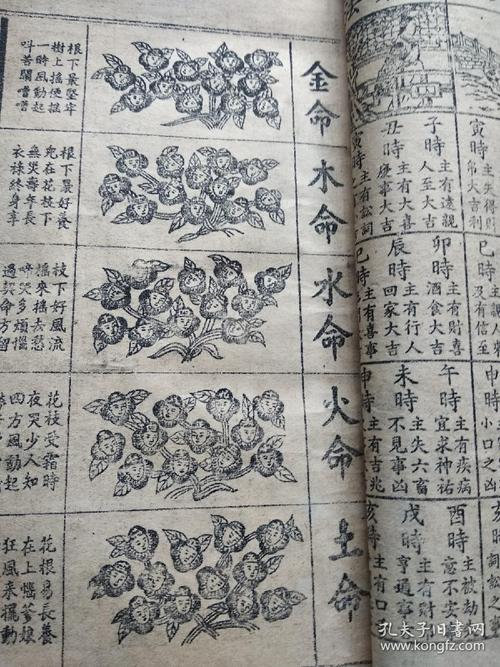 寅時
主失得財
吊大吉利
子時
主有遠親
人至大吉
丑時
主有大喜
慶事大吉
寅時
主有訟詞
巳時
及有信至
卯時
主有財喜
酒食大吉
辰時
主有行人
回家大吉
巳時
主有喜事
午時
主有疾病
宜求神祐
未時
主失六畜
不見事凶
申時
主有吉兆
時
小口之凶
酉時
主被劫
意不安
戌時
主有財
亨通事
亥時
主有口
金命
根下菓堅牢
樹上搖便搖
一時風動起
叫苦鬧嘈嘈
木命
根下菓好養
兜在花枝下
無災壽年長
衣祿終身享
水命
枝下好風流
搖來搖去愁
啼哭多煩惱
過契命方留
火命
花枝受霜時
夜哭少人知
四方風動起
土命
花根易長養
在上惱爹娘
狂風來擺動
孔夫子旧书网
www.kongfz.com